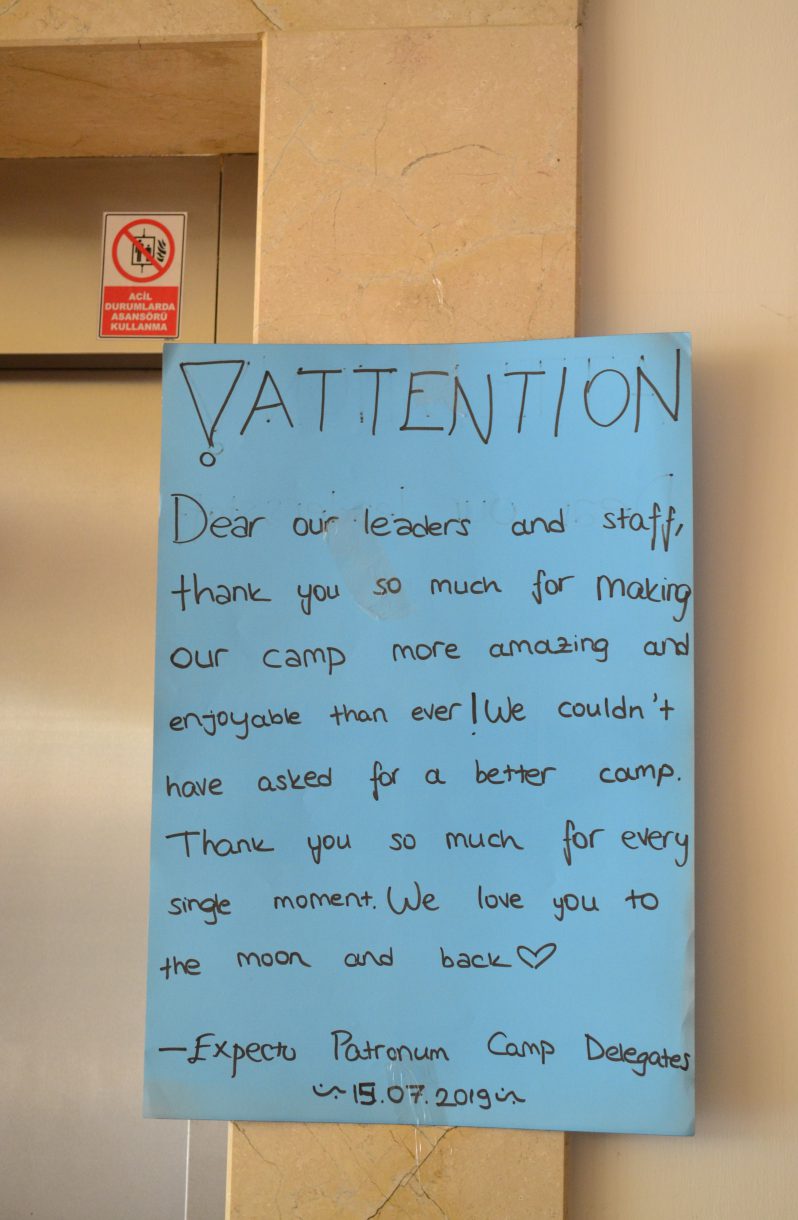 ACİL
DURUMLARDA
ASANSÖRÜ
KULLANMA
! ATTENTION
Dear our leaders and staff,
thank you so much for making
our camp more amazing and
enjoyable than ever! We couldn't
have asked for a better camp.
Thank you so much for every
single moment. We love you to
the moon and back ♡
—Expecto Patronum Camp Delegates
~ 15.07.2019 ~